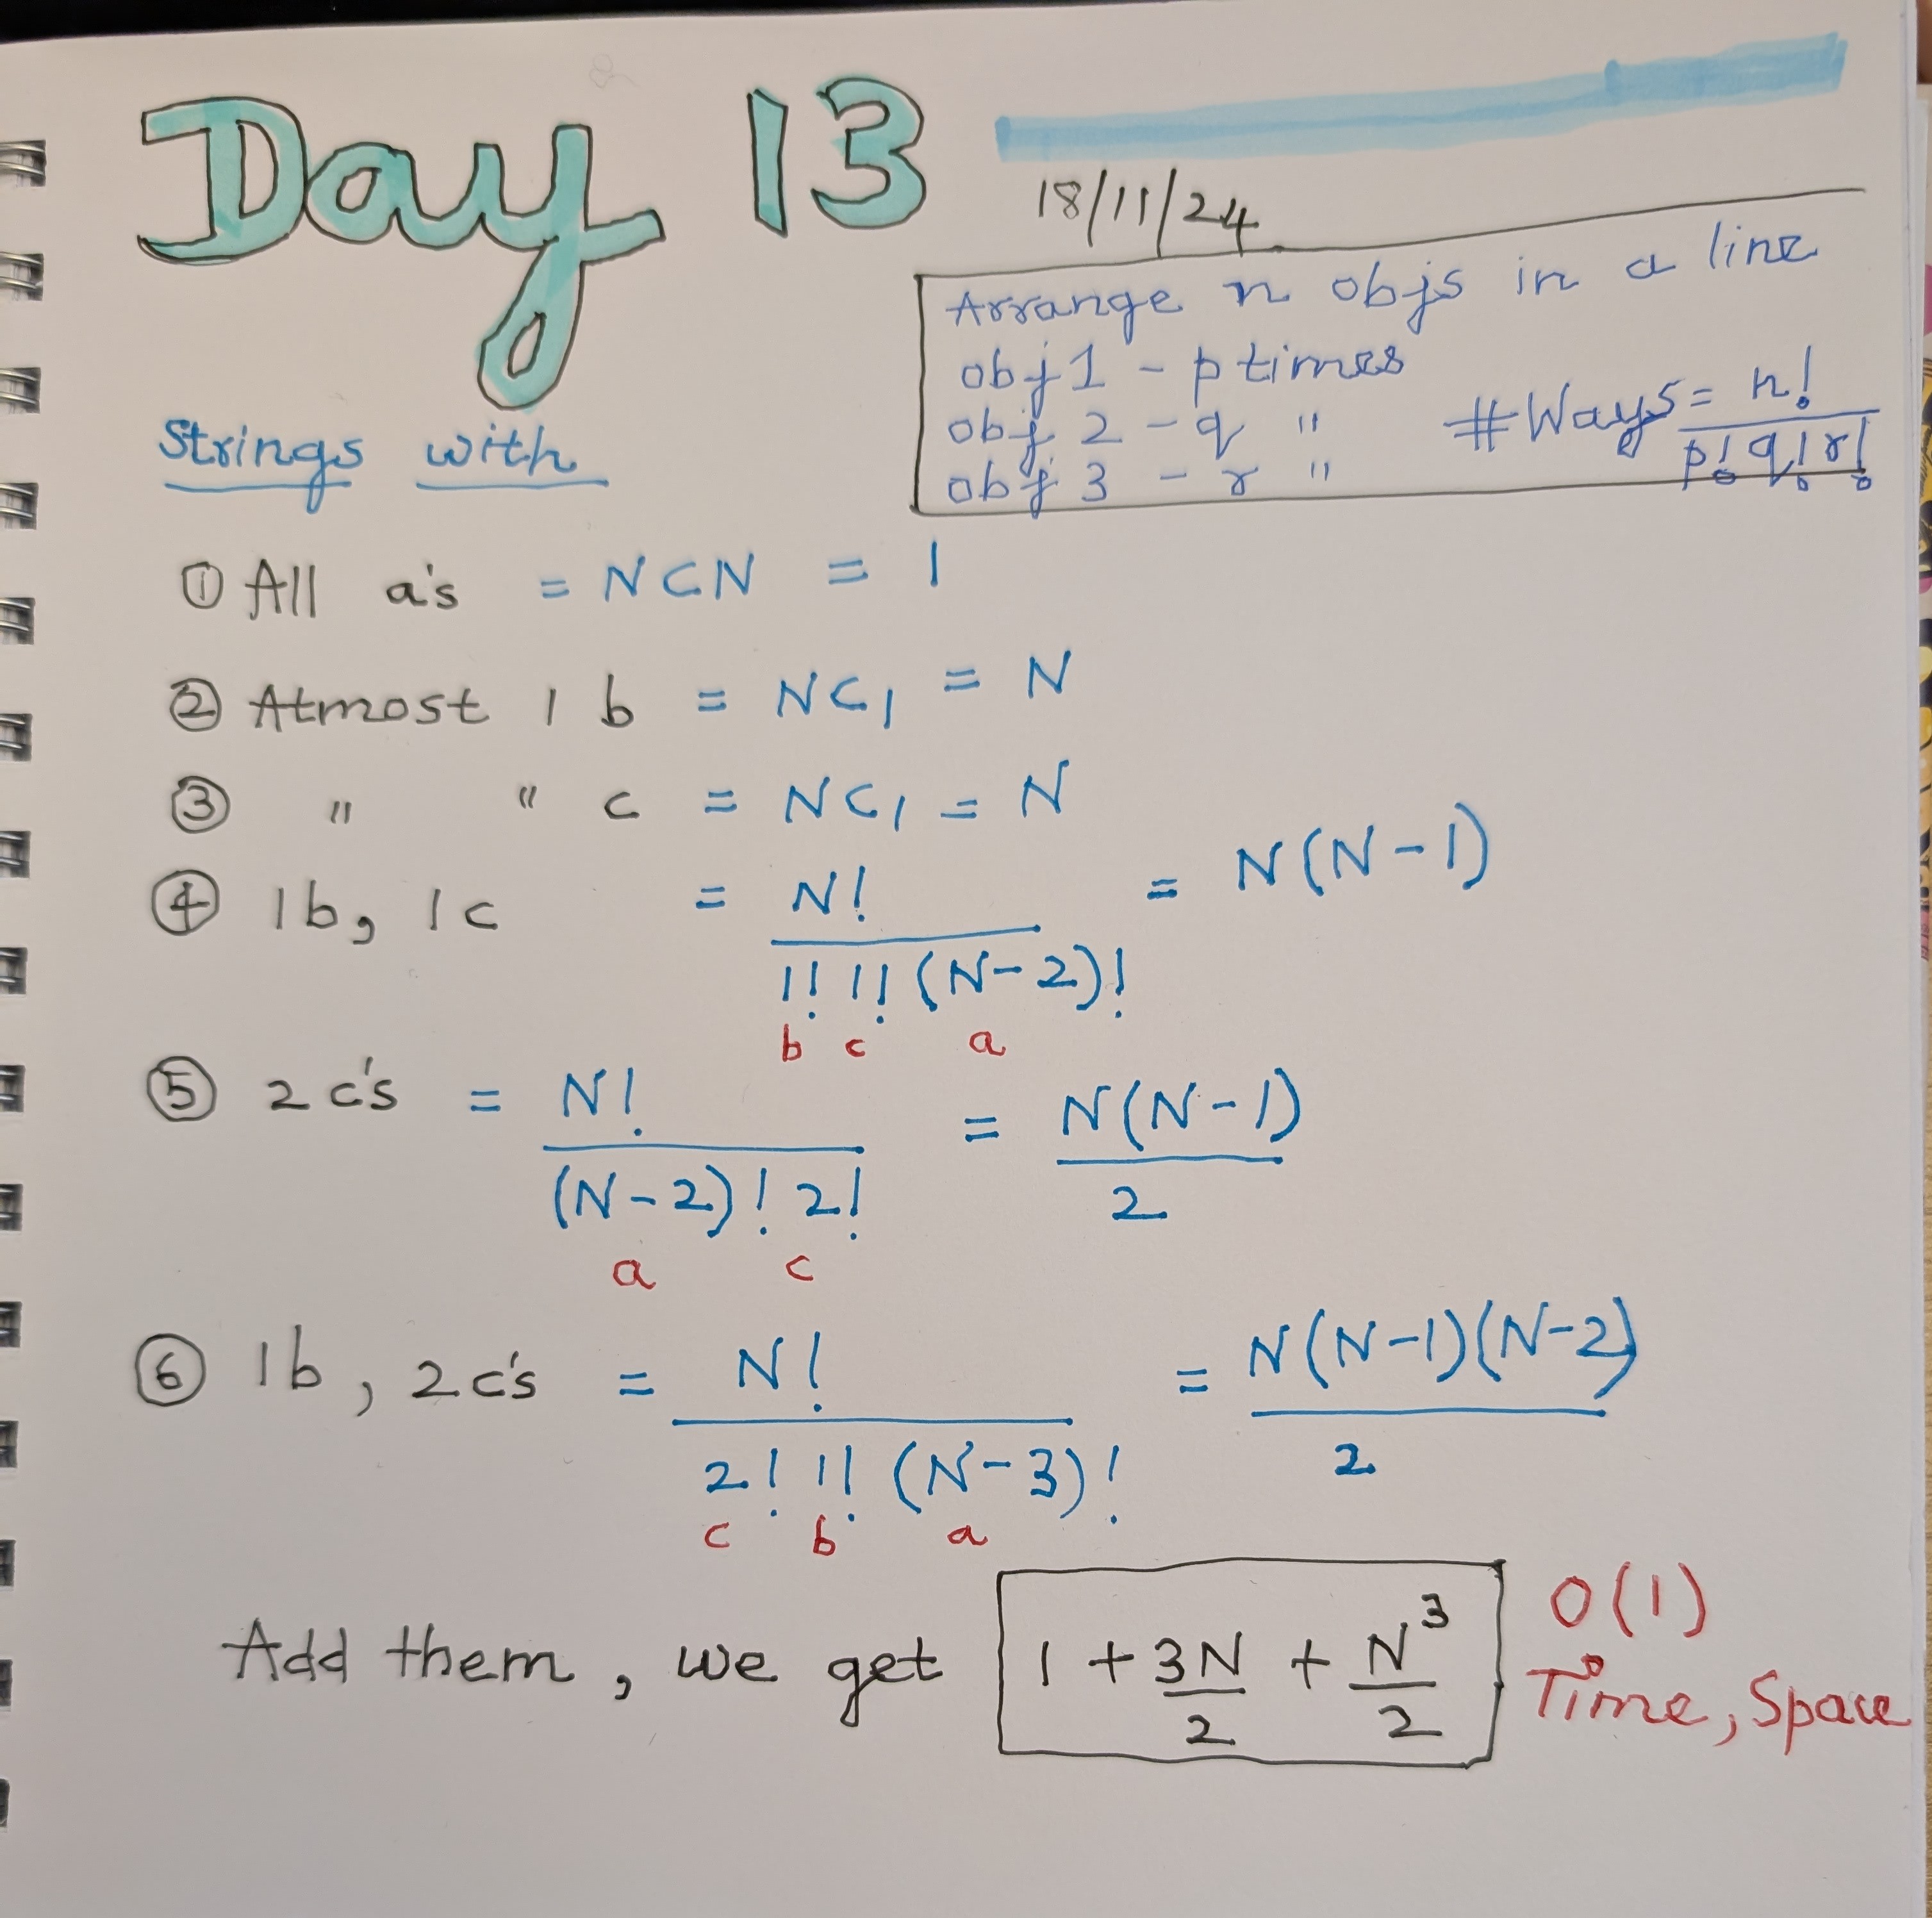 Day 13
18/11/24
Arrange n objs in a line
obj 1 - p times
obj 2 - q "
obj 3 - r "
#Ways = n! / p! q! r!
Strings with
① All a's = NCN = 1
② Atmost 1 b = NC1 = N
③ " " c = NC1 = N
④ 1b, 1c = N! / 1! 1! (N-2)! = N(N-1)
b c a
⑤ 2 c's = N! / (N-2)! 2! = N(N-1) / 2
a c
⑥ 1b, 2c's = N! / 2! 1! (N-3)! = N(N-1)(N-2) / 2
c b a
Add them, we get 1 + 3N/2 + N³/2
O(1)
Time, Space